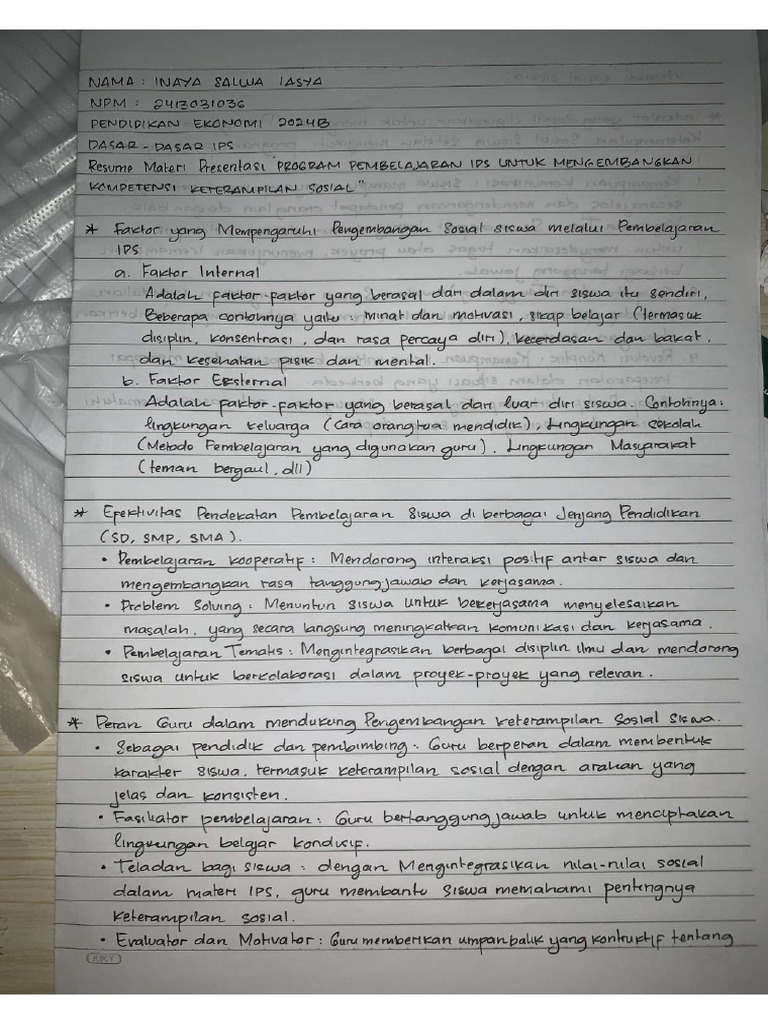 NAMA : INAYA SALWA IASYA
NPM : 2413031036
PENDIDIKAN EKONOMI 2024B
DASAR - DASAR IPS
Resume Materi Presentasi "PROGRAM PEMBELAJARAN IPS UNTUK MENGEMBANGKAN
KOMPETENSI KETERAMPILAN SOSIAL"
* Faktor yang Mempengaruhi Pengembangan Sosial siswa melalui Pembelajaran
IPS
a. Faktor Internal
Adalah faktor-faktor yang berasal dari dalam diri siswa itu sendiri,
Beberapa contohnya yaitu : minat dan motivasi, sikap belajar (termasuk
disiplin, konsentrasi, dan rasa percaya diri), kecerdasan dan bakat,
dan kesehatan pisik dan mental.
b. Faktor Eksternal
Adalah faktor-faktor yang berasal dari luar diri siswa. Contohnya:
lingkungan keluarga (cara orangtua mendidik), Lingkungan sekolah
(Metode Pembelajaran yang digunakan guru), Lingkungan Masyarakat
(teman bergaul, dll)
* Efektivitas Pendekatan Pembelajaran Siswa di berbagai Jenjang Pendidikan
(SD, SMP, SMA).
• Pembelajaran kooperatif : Mendorong interaksi positif antar siswa dan
mengembangkan rasa tanggung jawab dan kerjasama.
• Problem Solving : Menuntun siswa untuk bekerjasama menyelesaikan
masalah, yang secara langsung meningkatkan komunikasi dan kerjasama.
• Pembelajaran Tematis : Mengintegrasikan berbagai disiplin ilmu dan mendorong
siswa untuk berkolaborasi dalam proyek-proyek yang relevan.
* Peran Guru dalam mendukung Pengembangan keterampilan Sosial Siswa.
• Sebagai pendidik dan pembimbing : Guru berperan dalam membentuk
karakter siswa, termasuk keterampilan sosial dengan arahan yang
jelas dan konsisten.
• Fasilitator pembelajaran : Guru bertanggung jawab untuk menciptakan
lingkungan belajar kondusif.
• Teladan bagi siswa : dengan Mengintegrasikan nilai-nilai sosial
dalam materi IPS, guru membantu siswa memahami pentingnya
keterampilan sosial.
• Evaluator dan Motivator : Guru memberikan umpan balik yang kontruktif tentang